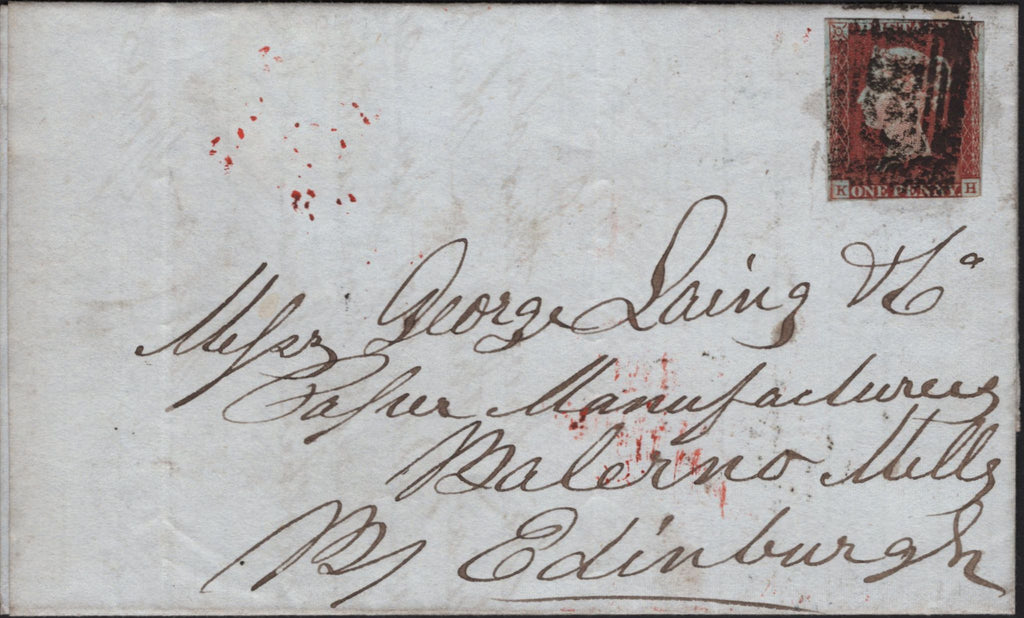 POSTAGE
K ONE PENNY H
Messrs George Laing & Co
Paper Manufacturers
Balerno Mills
By Edinburgh